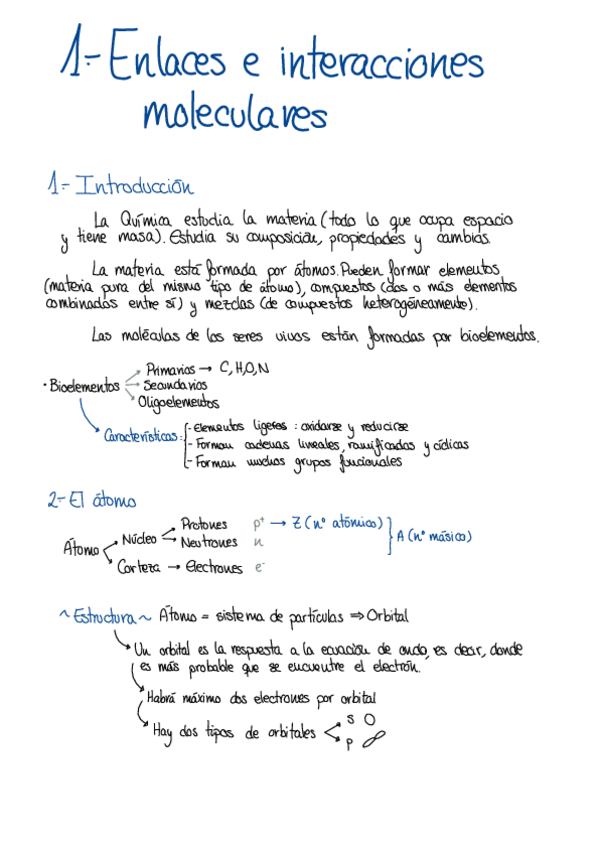 1-Enlaces e interacciones
moleculares
1- Introducción
La Química estudia la materia (todo lo que ocupa espacio
y tiene masa). Estudia su composición, propiedades y cambios.
La materia está formada por átomos. Pueden formar elementos
(materia pura del mismo tipo de átomo), compuestos (dos o más elementos
combinados entre sí) y mezclas (de compuestos heterogéneamente).
Las moléculas de los seres vivos están formadas por bioelementos.
· Bioelementos
Primarios → C,H,O,N
Secundarios
Oligoelementos
Características:
- Elementos ligeros : oxidarse y reducirse
- Forman cadenas lineales, ramificadas y cíclicas
- Forman muchos grupos funcionales
2- El átomo
Átomo
Núcleo
Protones p⁺ → Z (nº atómico)
Neutrones n
A (nº másico)
Corteza → Electrones e⁻
~ Estructura ~ Átomo = sistema de partículas ⇒ Orbital
Un orbital es la respuesta a la ecuación de onda, es decir, donde
es más probable que se encuentre el electrón.
Habrá máximo dos electrones por orbital
Hay dos tipos de orbitales
s
p